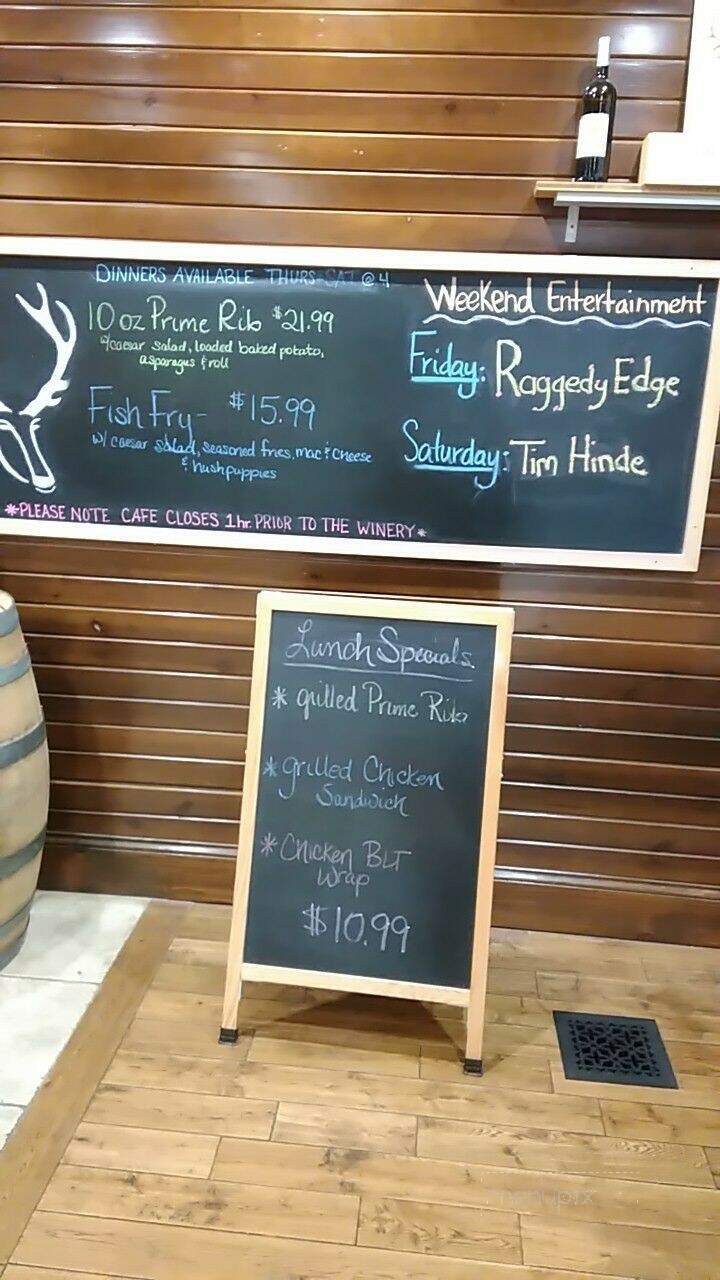 DINNERS AVAILABLE THURS-SAT @ 4
10 oz Prime Rib $21.99
w/caesar salad, loaded baked potato,
asparagus & roll
Fish Fry - $15.99
w/ caesar salad, seasoned fries, mac & cheese
& hushpuppies
*PLEASE NOTE CAFE CLOSES 1hr. PRIOR TO THE WINERY*
Weekend Entertainment
Friday: Raggedy Edge
Saturday: Tim Hinde
Lunch Specials
* grilled Prime Rib
* grilled Chicken
Sandwich
* Chicken BLT
Wrap
$10.99
menupix